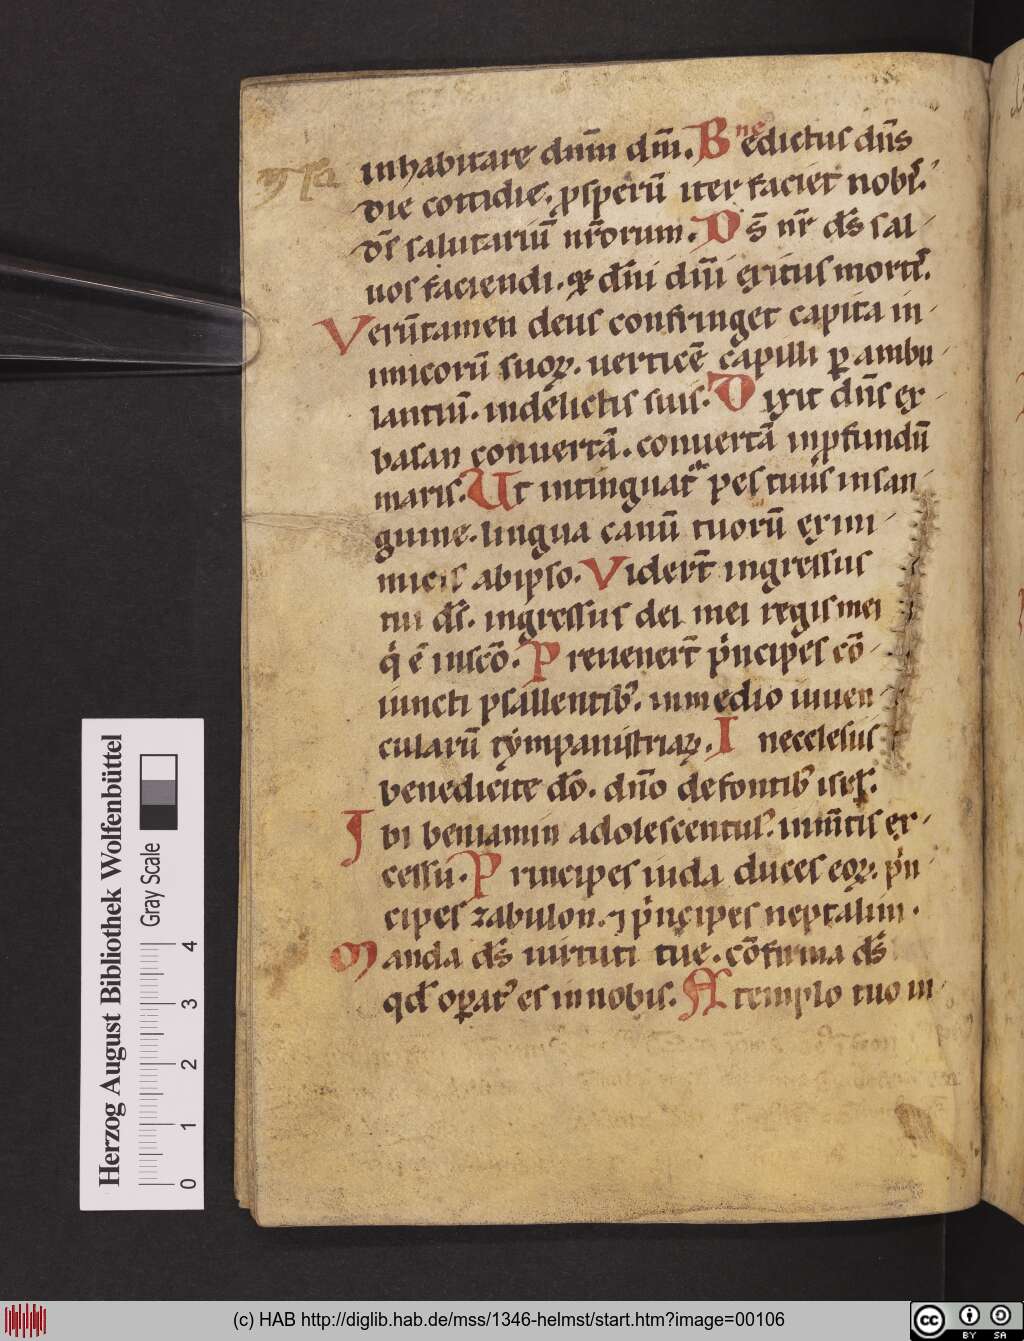 inhabitare dnm̄ dm̄. Benedictus dn̄s
die cottidie. ꝓsperū iter faciet nobis.
ds̄ salutariū nr̄orum. Ds̄ nr̄ ds̄ sal
uos faciendi. & dn̄i dn̄i exitus mortis.
Verūtamen deus confringet capita in
imicorū suoꝝ. uerticē capilli ꝑambu
lantiū. indelictis suis. Dixit dn̄s ex
basan conuertā. conuertā inꝓfundū
maris. Ut intinguat᷑ pes tuus insan
guine. lingua canū tuorū exini
micis abipso. Vider̄t ingressus
tui ds̄. ingressus dei mei regis mei
qͥ ē inscō. Preuener̄t pͥncipes cō
iuncti psallentibꝰ. inmedio iuuen
cularū tẏmpanistriaꝝ. Inecclesiis
benedicite dō. dn̄o defontibꝰ isrl̄.
Ibi beniamin adolescentulꝰ. inm̄tis ex
cessu. Principes iuda duces eoꝝ. pͥn
cipes zabulon. ⁊ pͥncipes neptalim.
Manda ds̄ uirtuti tue. cōfirma ds̄
qd̄ oꝑatꝰ es in nobis. A templo tuo in
Herzog August Bibliothek Wolfenbüttel
Gray Scale
0 1 2 3 4
(c) HAB http://diglib.hab.de/mss/1346-helmst/start.htm?image=00106
cc BY SA